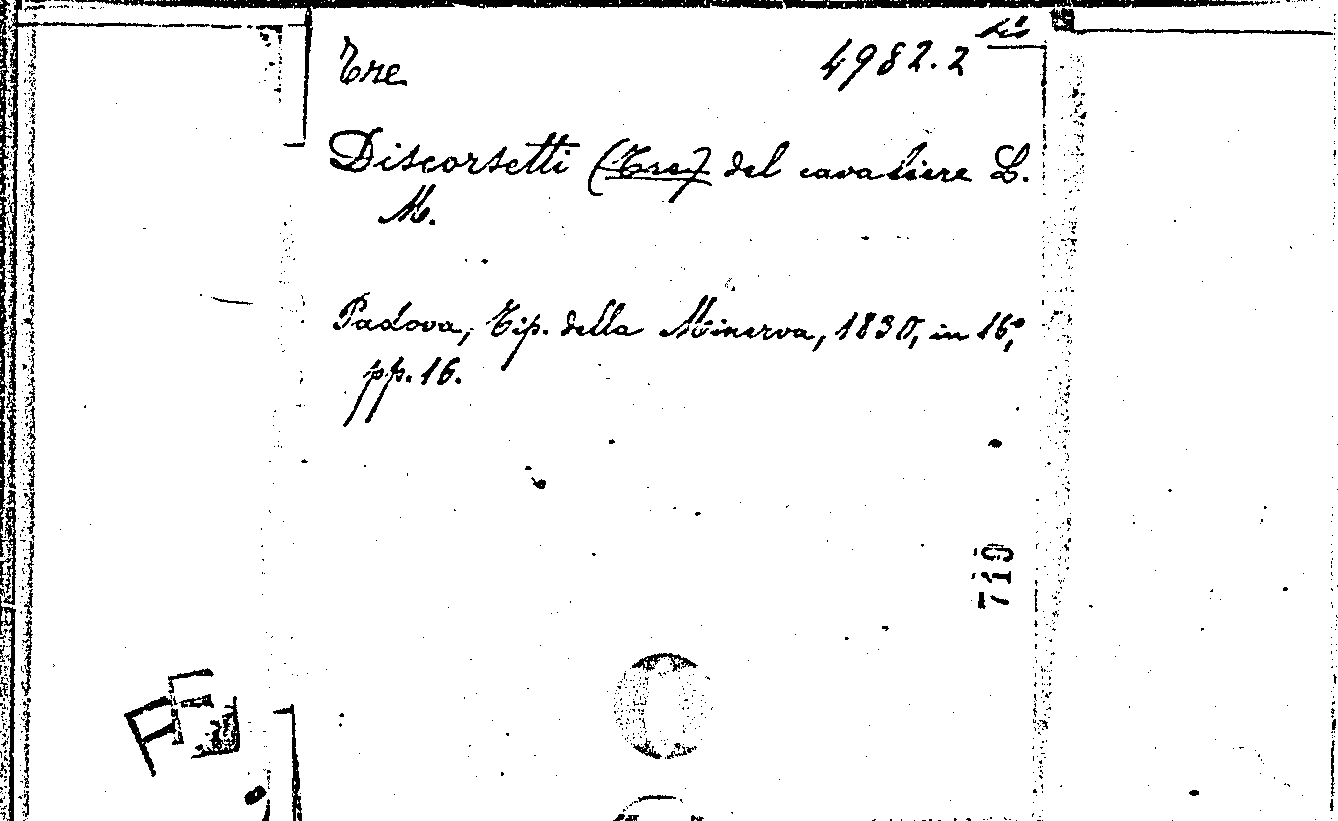 Tre 4982.2
Discorsetti (Tre) del cavaliere L.
M.
Padova, Tip. della Minerva, 1830, in 16º,
pp. 16.
710